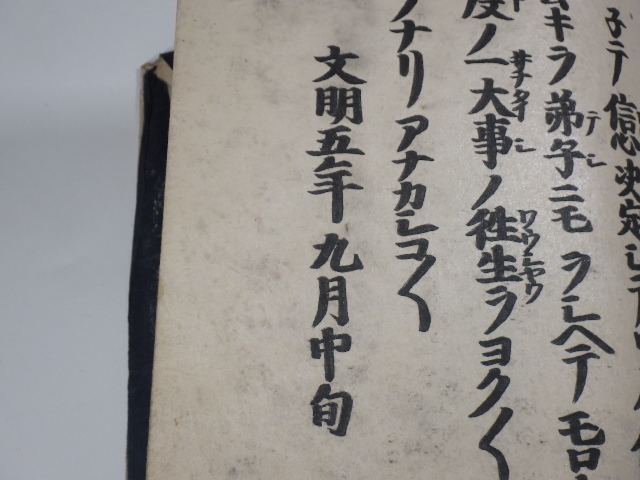 子テ信心決定シテ
キラ弟子ニモヲシヘテモロ
度ノ一大事ノ往生ヲヨク〱
ノナリアナカシコ〱
文明五年九月中旬